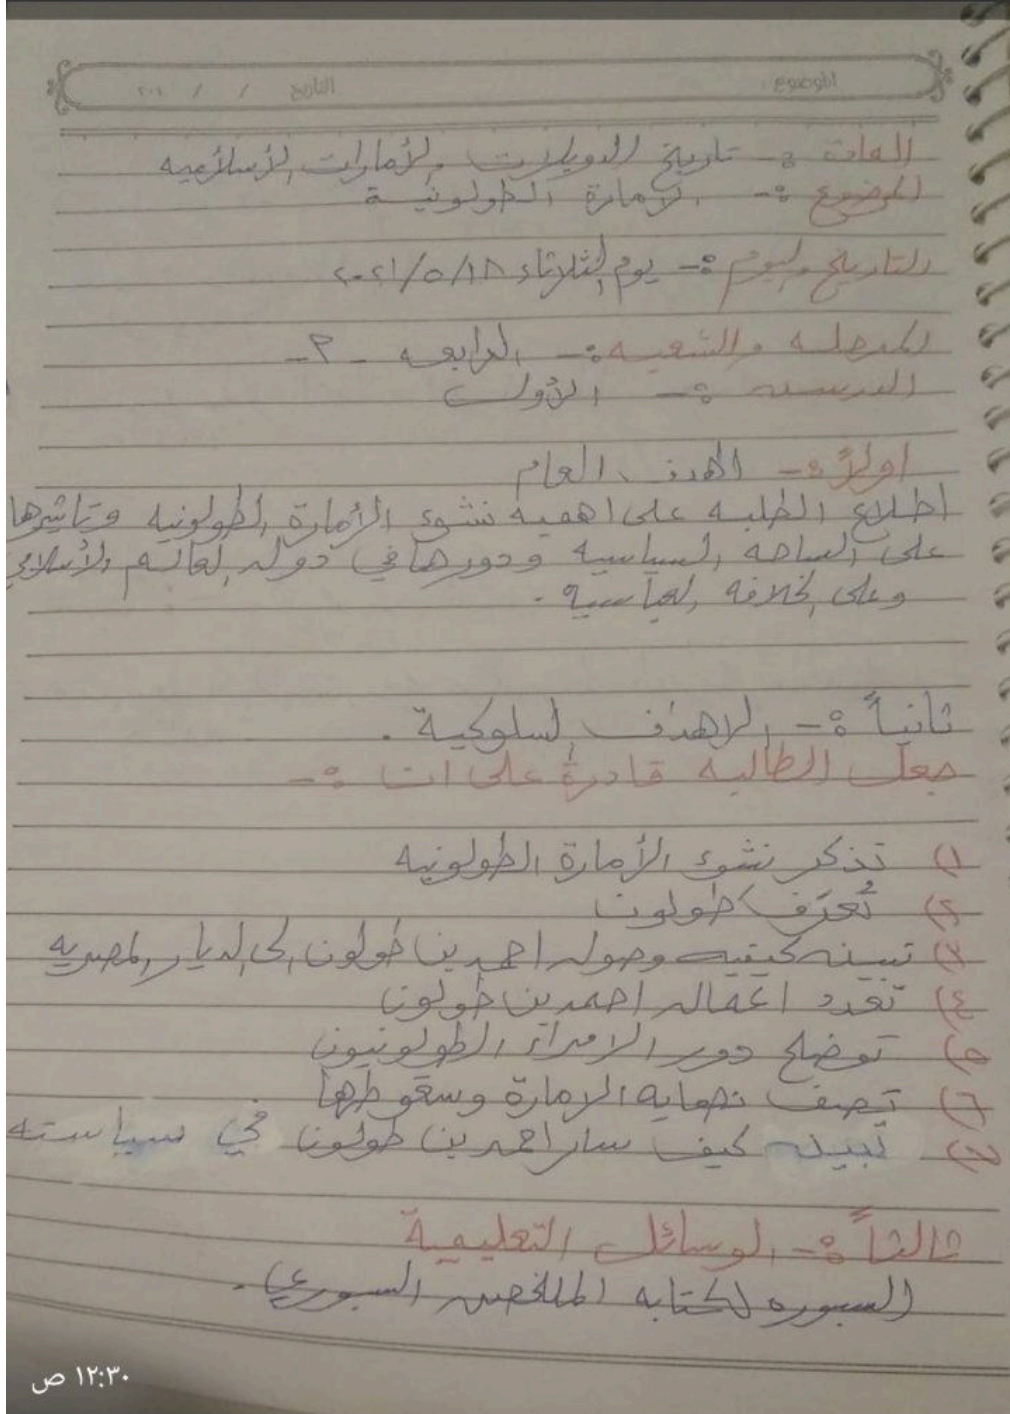 الموضوع: التاريخ / / ٢٠٢
المادة :- تاريخ الدويلات والأمارات الأسلاميه
الموضوع :- الامارة الطولونية
التاريخ واليوم :- يوم الثلاثاء ٢٠٢١/٥/١٨
المرحله والشعبه :- الرابعه - ٢ -
الدرس :- الأول
اولاً :- الهدف العام
اطلاع الطلبه على اهميه نشوء الأمارة الطولونيه وتاثيرها
على الساحه السياسيه ودورها في دوله العالم الأسلامي
وعلى الخلافه العباسيه .
ثانياً :- الاهداف السلوكية .
جعل الطالبه قادرة على ان :-
١) تذكر نشوء الأمارة الطولونيه
٢) تُعرّف طولون
٣) تبين كيفيه وصول احمد بن طولون الى الديار المصريه
٤) تعدد اعمال احمد بن طولون
٥) توضح دور الامراء الطولونيون
٦) تصف نهايه الامارة وسقوطها
٧) تبين كيف سار احمد بن طولون في سياسته
ثالثاً :- الوسائل التعليمية
السبوره لكتابه الملخص السبوري .
١٢:٣٠ ص